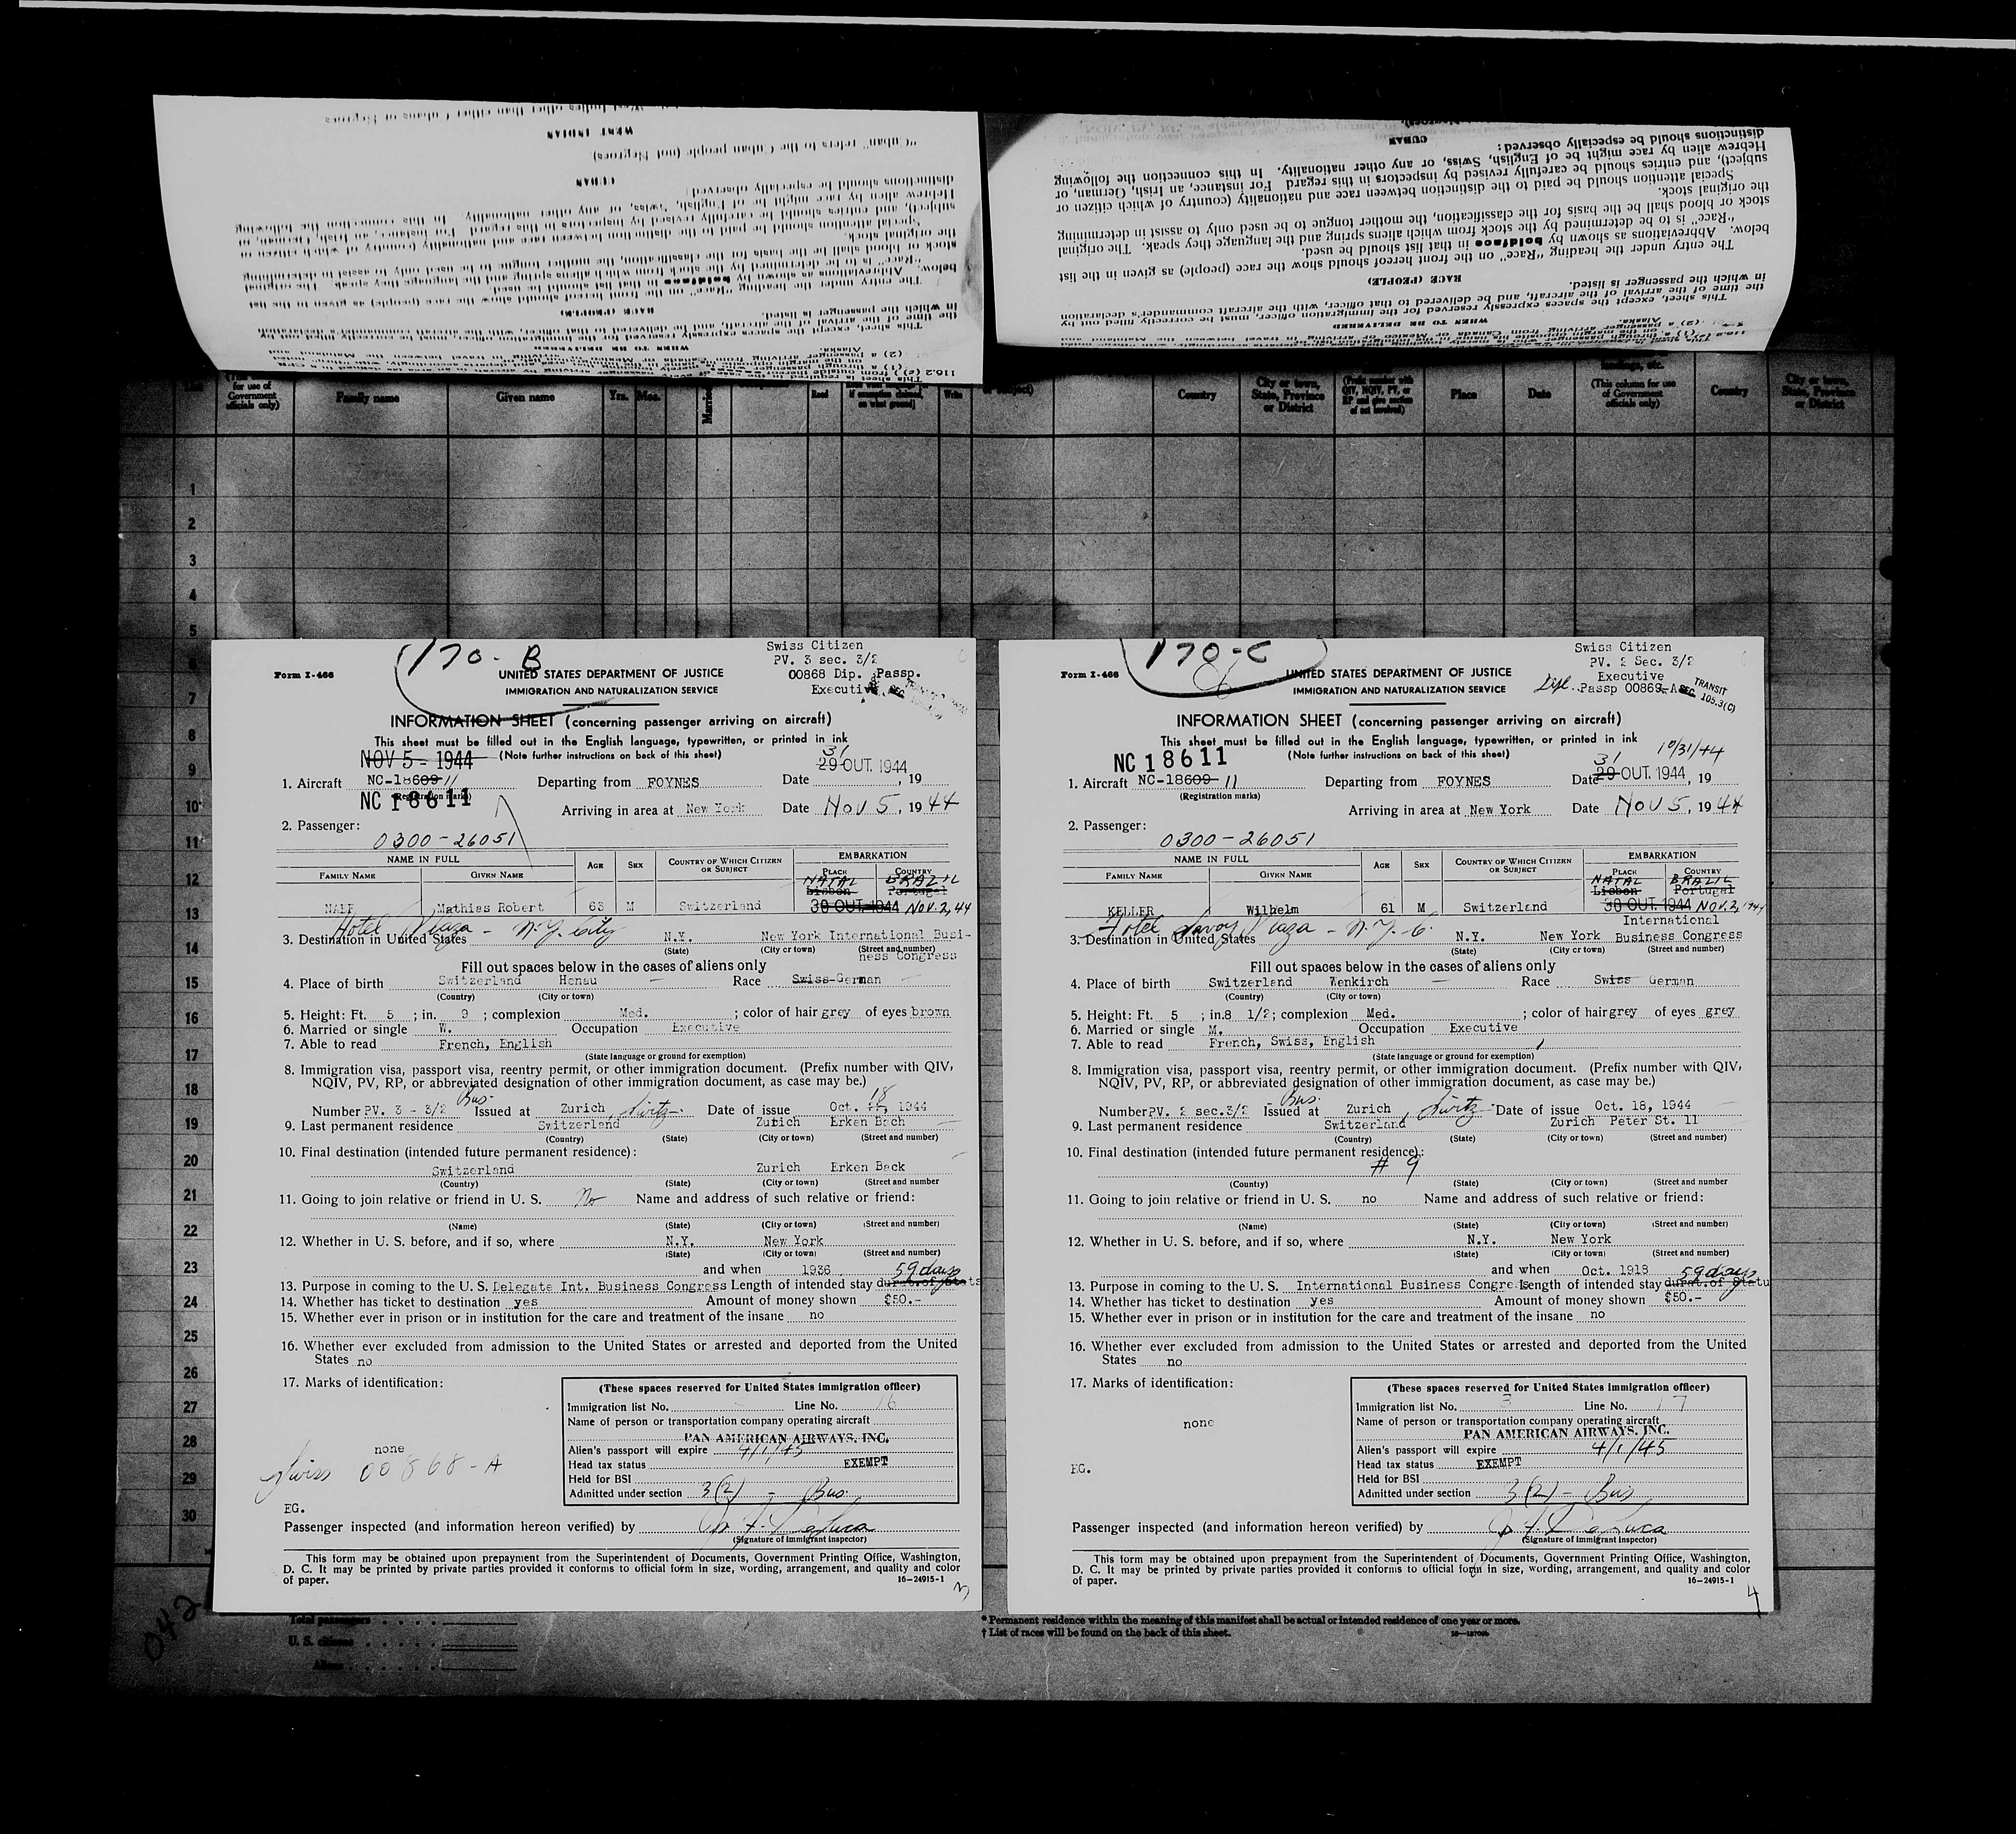 WEST INDIAN
"Cuban" refers to the Cuban people (not Negroes)
CUBAN
distinctions should be especially observed:
Hebrew alien by race might be of English, Swiss, or any other nationality. In this connection the following
subject), and entries should be carefully revised by inspectors in this regard For instance, an Irish, German, or
Special attention should be paid to the distinction between race and nationality (country of which citizen or
the original stock.
stock or blood shall be the basis for the classification, the mother tongue to be used only to assist in determining
"Race" is to be determined by the stock from which aliens spring and the language they speak. The original
below. Abbreviations as shown by boldface in that list should be used.
The entry under the heading "Race" on the front hereof should show the race (people) as given in the list
RACE (PEOPLE)
in which the passenger is listed.
the time of the arrival of the aircraft, and be delivered to that officer, with the aircraft commander's declaration
This sheet, except the spaces expressly reserved for the immigration officer, must be correctly filled out by
WHEN TO BE DELIVERED
Alaska.
CUBAN
distinctions should be especially observed:
Hebrew alien by race might be of English, Swiss, or any other nationality. In this connection the following
subject), and entries should be carefully revised by inspectors in this regard For instance, an Irish, German, or
Special attention should be paid to the distinction between race and nationality (country of which citizen or
the original stock.
stock or blood shall be the basis for the classification, the mother tongue to be used only to assist in determining
"Race" is to be determined by the stock from which aliens spring and the language they speak. The original
below. Abbreviations as shown by boldface in that list should be used.
The entry under the heading "Race" on the front hereof should show the race (people) as given in the list
RACE (PEOPLE)
in which the passenger is listed.
the time of the arrival of the aircraft, and be delivered to that officer, with the aircraft commander's declaration
This sheet, except the spaces expressly reserved for the immigration officer, must be correctly filled out by
WHEN TO BE DELIVERED
Alaska.
for use of
Government
officials only)
Family name
Given name
Yrs. Mos.
Married
Read
Write
Country
City or town,
State, Province
or District
Place
Date
(This column for use
of Government
officials only)
Country
City or town,
State, Province
or District
1
2
3
4
5
7
8
9
10
11
12
13
14
15
16
17
18
19
20
21
22
23
24
25
26
27
28
29
30
170-B
Swiss Citizen
PV. 3 sec. 3/2
00868 Dip. Passp.
Executive
Form I-466
UNITED STATES DEPARTMENT OF JUSTICE
IMMIGRATION AND NATURALIZATION SERVICE
INFORMATION SHEET (concerning passenger arriving on aircraft)
This sheet must be filled out in the English language, typewritten, or printed in ink
NOV 5 - 1944 (Note further instructions on back of this sheet)
31
29 OUT. 1944
1. Aircraft NC-18609 11 Departing from FOYNES Date , 19
(Registration marks)
NC 18611
Arriving in area at New York Date Nov 5, 1944
2. Passenger:
0300-26051
NAME IN FULL AGE SEX COUNTRY OF WHICH CITIZEN OR SUBJECT EMBARKATION
FAMILY NAME GIVEN NAME PLACE COUNTRY
NATAL BRAZIL
Lisbon Portugal
NAEF Mathias Robert 63 M Switzerland 30 OUT. 1944 Nov. 2, 44
Hotel Plaza - N.Y. City
3. Destination in United States N.Y. New York International Busi-
(State) (City or town) (Street and number)
ness Congress
Fill out spaces below in the cases of aliens only
4. Place of birth Switzerland Henau Race Swiss-German
(Country) (City or town)
5. Height: Ft. 5 ; in. 9 ; complexion Med. ; color of hair grey of eyes brown
6. Married or single W. Occupation Executive
7. Able to read French, English
(State language or ground for exemption)
8. Immigration visa, passport visa, reentry permit, or other immigration document. (Prefix number with QIV,
NQIV, PV, RP, or abbreviated designation of other immigration document, as case may be.)
Bus. 18
Number PV. 3 - 3/2 Issued at Zurich, Date of issue Oct. , 1944
9. Last permanent residence Switzerland Zurich Erken Bach
(Country) (State) (City or town) (Street and number)
10. Final destination (intended future permanent residence):
Switzerland Zurich Erken Back
(Country) (State) (City or town) (Street and number
11. Going to join relative or friend in U. S. No Name and address of such relative or friend:
(Name) (State) (City or town) (Street and number)
12. Whether in U. S. before, and if so, where N.Y. New York
(State) (City or town) (Street and number)
and when 1936 59 days
13. Purpose in coming to the U. S. Delegate Int. Business Congress Length of intended stay durat. of
14. Whether has ticket to destination yes Amount of money shown $50.-
15. Whether ever in prison or in institution for the care and treatment of the insane no
16. Whether ever excluded from admission to the United States or arrested and deported from the United
States no
17. Marks of identification:
(These spaces reserved for United States immigration officer)
Immigration list No. Line No. 16
Name of person or transportation company operating aircraft
PAN AMERICAN AIRWAYS, INC.
none
Alien's passport will expire 4/1/45
Swiss 00868-A
Head tax status EXEMPT
Held for BSI
Admitted under section 3(2) - Bus.
EG.
Passenger inspected (and information hereon verified) by
(Signature of immigrant inspector)
This form may be obtained upon prepayment from the Superintendent of Documents, Government Printing Office, Washington,
D. C. It may be printed by private parties provided it conforms to official form in size, wording, arrangement, and quality and color
of paper. 16-24915-1
3
170-C
Swiss Citizen
PV. 2 Sec. 3/2
Executive
Dipl. Passp 00869-A
SEC. TRANSIT 105.3(C)
Form I-466
UNITED STATES DEPARTMENT OF JUSTICE
IMMIGRATION AND NATURALIZATION SERVICE
INFORMATION SHEET (concerning passenger arriving on aircraft)
This sheet must be filled out in the English language, typewritten, or printed in ink
NC 18611 (Note further instructions on back of this sheet) 10/31/44
31
1. Aircraft NC-18609 11 Departing from FOYNES Date 29 OUT. 1944, 19
(Registration marks)
Arriving in area at New York Date Nov 5, 1944
2. Passenger:
0300-26051
NAME IN FULL AGE SEX COUNTRY OF WHICH CITIZEN OR SUBJECT EMBARKATION
FAMILY NAME GIVEN NAME PLACE COUNTRY
NATAL BRAZIL
Lisbon Portugal
KELLER Wilhelm 61 M Switzerland 30 OUT. 1944 Nov. 2, 1944
Hotel Savoy Plaza - N.Y.C. International
3. Destination in United States N.Y. New York Business Congress
(State) (City or town) (Street and number)
Fill out spaces below in the cases of aliens only
4. Place of birth Switzerland Wenkirch Race Swiss German
(Country) (City or town)
5. Height: Ft. 5 ; in. 8 1/2; complexion Med. ; color of hair grey of eyes grey
6. Married or single M. Occupation Executive
7. Able to read French, Swiss, English
(State language or ground for exemption)
8. Immigration visa, passport visa, reentry permit, or other immigration document. (Prefix number with QIV,
NQIV, PV, RP, or abbreviated designation of other immigration document, as case may be.)
Bus.
Number PV. 2 sec.3/2 Issued at Zurich, Date of issue Oct. 18, 1944
9. Last permanent residence Switzerland Zurich Peter St. 11
(Country) (State) (City or town) (Street and number)
10. Final destination (intended future permanent residence):
# 9
(Country) (State) (City or town) (Street and number
11. Going to join relative or friend in U. S. no Name and address of such relative or friend:
(Name) (State) (City or town) (Street and number)
12. Whether in U. S. before, and if so, where N.Y. New York
(State) (City or town) (Street and number)
and when Oct. 1918 59 days
13. Purpose in coming to the U. S. International Business Congress Length of intended stay durat. of
14. Whether has ticket to destination yes Amount of money shown $50.-
15. Whether ever in prison or in institution for the care and treatment of the insane no
16. Whether ever excluded from admission to the United States or arrested and deported from the United
States no
17. Marks of identification:
(These spaces reserved for United States immigration officer)
Immigration list No. 3 Line No. 17
none
Name of person or transportation company operating aircraft
PAN AMERICAN AIRWAYS, INC.
Alien's passport will expire 4/1/45
EG.
Head tax status EXEMPT
Held for BSI
Admitted under section 3(2) - Bus
Passenger inspected (and information hereon verified) by
(Signature of immigrant inspector)
This form may be obtained upon prepayment from the Superintendent of Documents, Government Printing Office, Washington,
D. C. It may be printed by private parties provided it conforms to official form in size, wording, arrangement, and quality and color
of paper. 16-24915-1
4
042
Total passengers
U. S. citizens
Aliens
* Permanent residence within the meaning of this manifest shall be actual or intended residence of one year or more.
† List of races will be found on the back of this sheet.